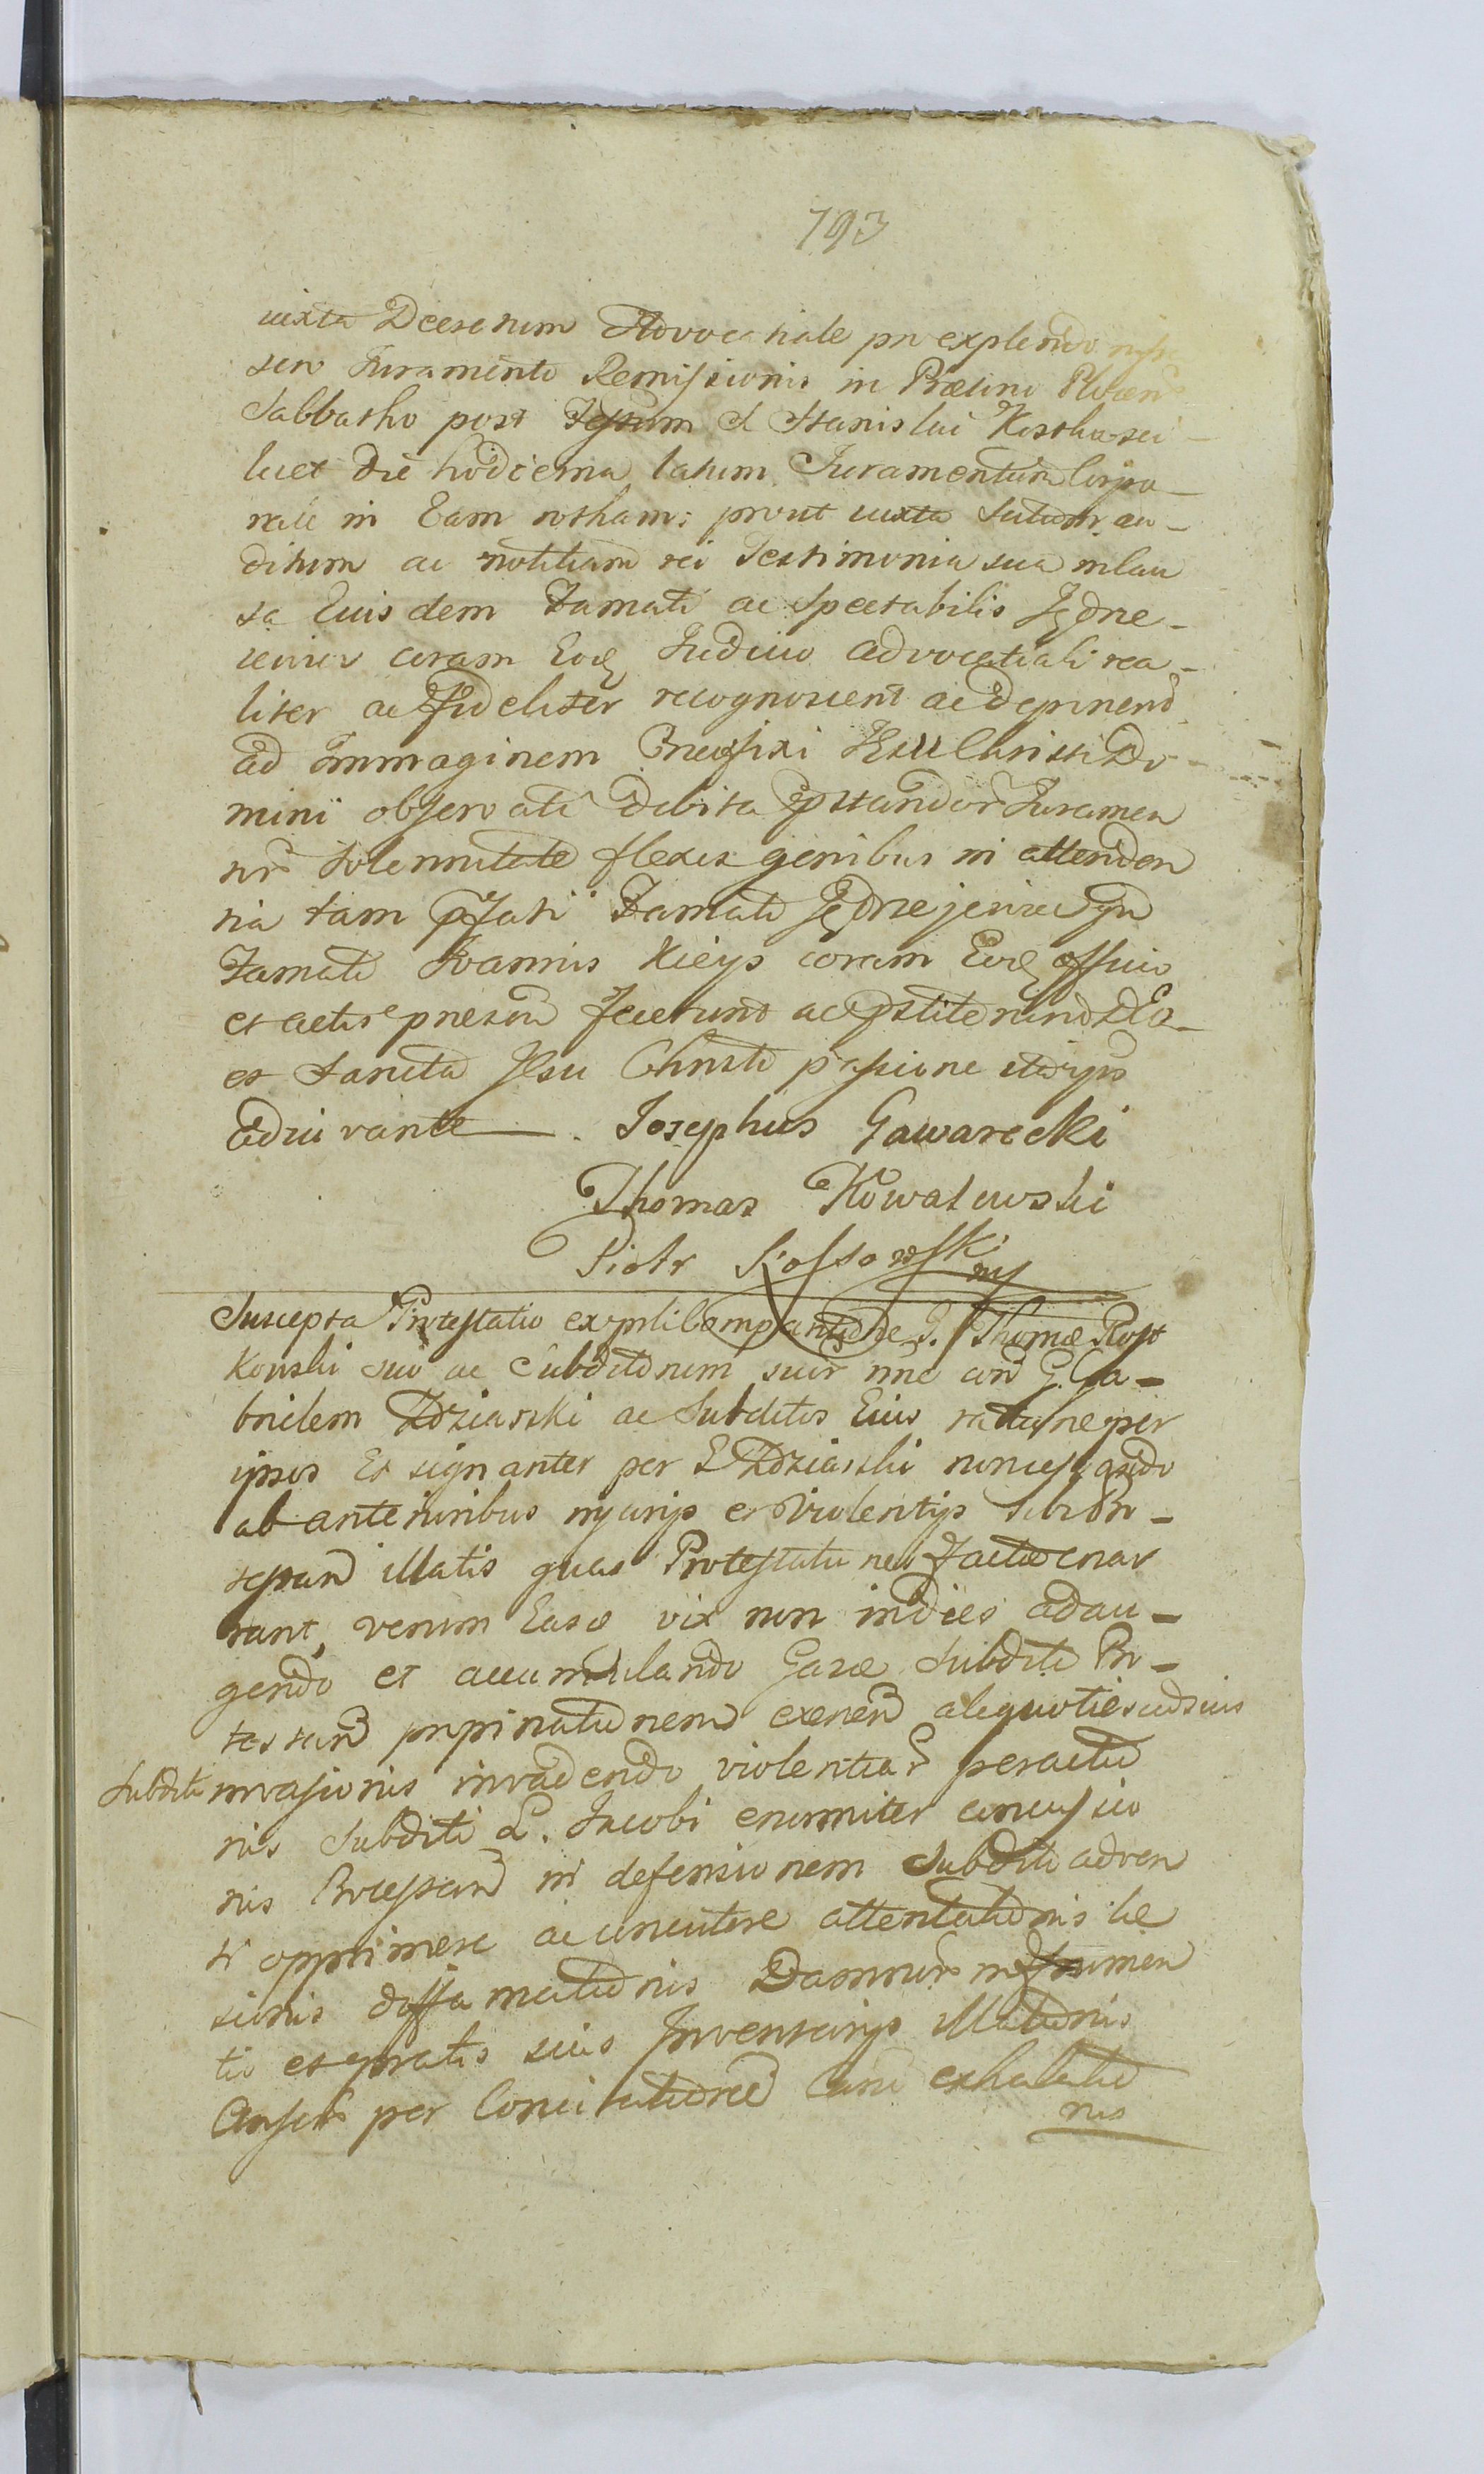 793
iuxta Decretum Advocatiale pro explendo
seu Juramento Remissionis in Prætorio Plocen
Sabbatho post Festum S Stanislai Kostka sci
licet die hodierna latum Juramentum Corpo
rale in Eam rotham: prout iuxta scitum au
ditum ac notitiam rei Testimonia sua in Cau
sa Eiusdem Famati ac Spectabilis Jędrze
iewicz coram Eodem Judicio advocatiali rea
liter ac fideliter recognoscent ac deponend
ad Immaginem Crucifixi Jesu Christi Do
mini observati debita pstandor Juramen
tor Solennitate flexis genibus in attenden
tia tam pfati Famati Jędrzejewicz qm
Famati Joannis Kieys coram Eodem officio
et actis presen fecerunt ac pstiterunt Deo
et Sancta Jesu Christi passione
Adiuvante . Josephus Gawarecki
Thomas Kowalewski
Piotr Kossowski mp
Suscepta Protestatio exparti Comparitione G. Thomæ Rost
kowski suo ac Subditorum suor nne con G. Ga
brielem Zdziarski ac Subditos Eius ratione per
ipsos Et signanter per G Zdziarski non cessando
ab anterioribus injurijs et violentijs sibi Pro
testan illatis quas Protestationes factæ enar
rant, verum Easd vix non indies adau
gendo et accumulando Gasæ Subditi Pro
testan propinationem exercen aliquoties ad suis
Subditi invasionis invadendo violentiar peractio
nis Subditi L. Jacobi enormiter concussio
nis Protestan in defensionem Subditi adven
ti opprimere ac concutere attentationis læ
sionis diffamationis Damnor in frumen
tis et pratis suis Inventarijs illationis
Anser per Concitationem Canu exhalatio
nis